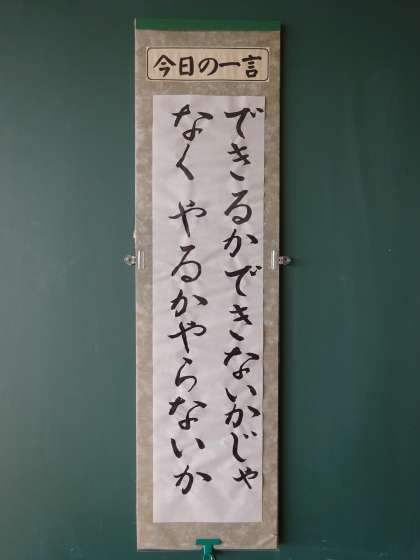 今日の一言
できるかできないかじゃ
なくやるかやらないか